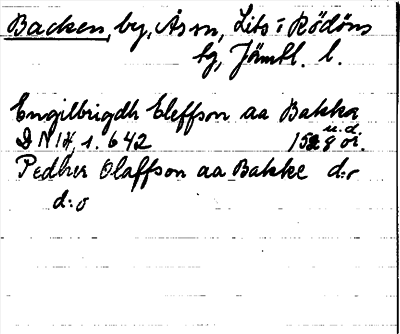 Backen, by, Ås sn, Lits o Rödöns
tg, Jämtl. l.
Engilbrigdh Eleffson aa Bakka
u. d.
D N 14, s. 642 1528 or.
Pedher Olaffson aa Bakke d:o
d:o